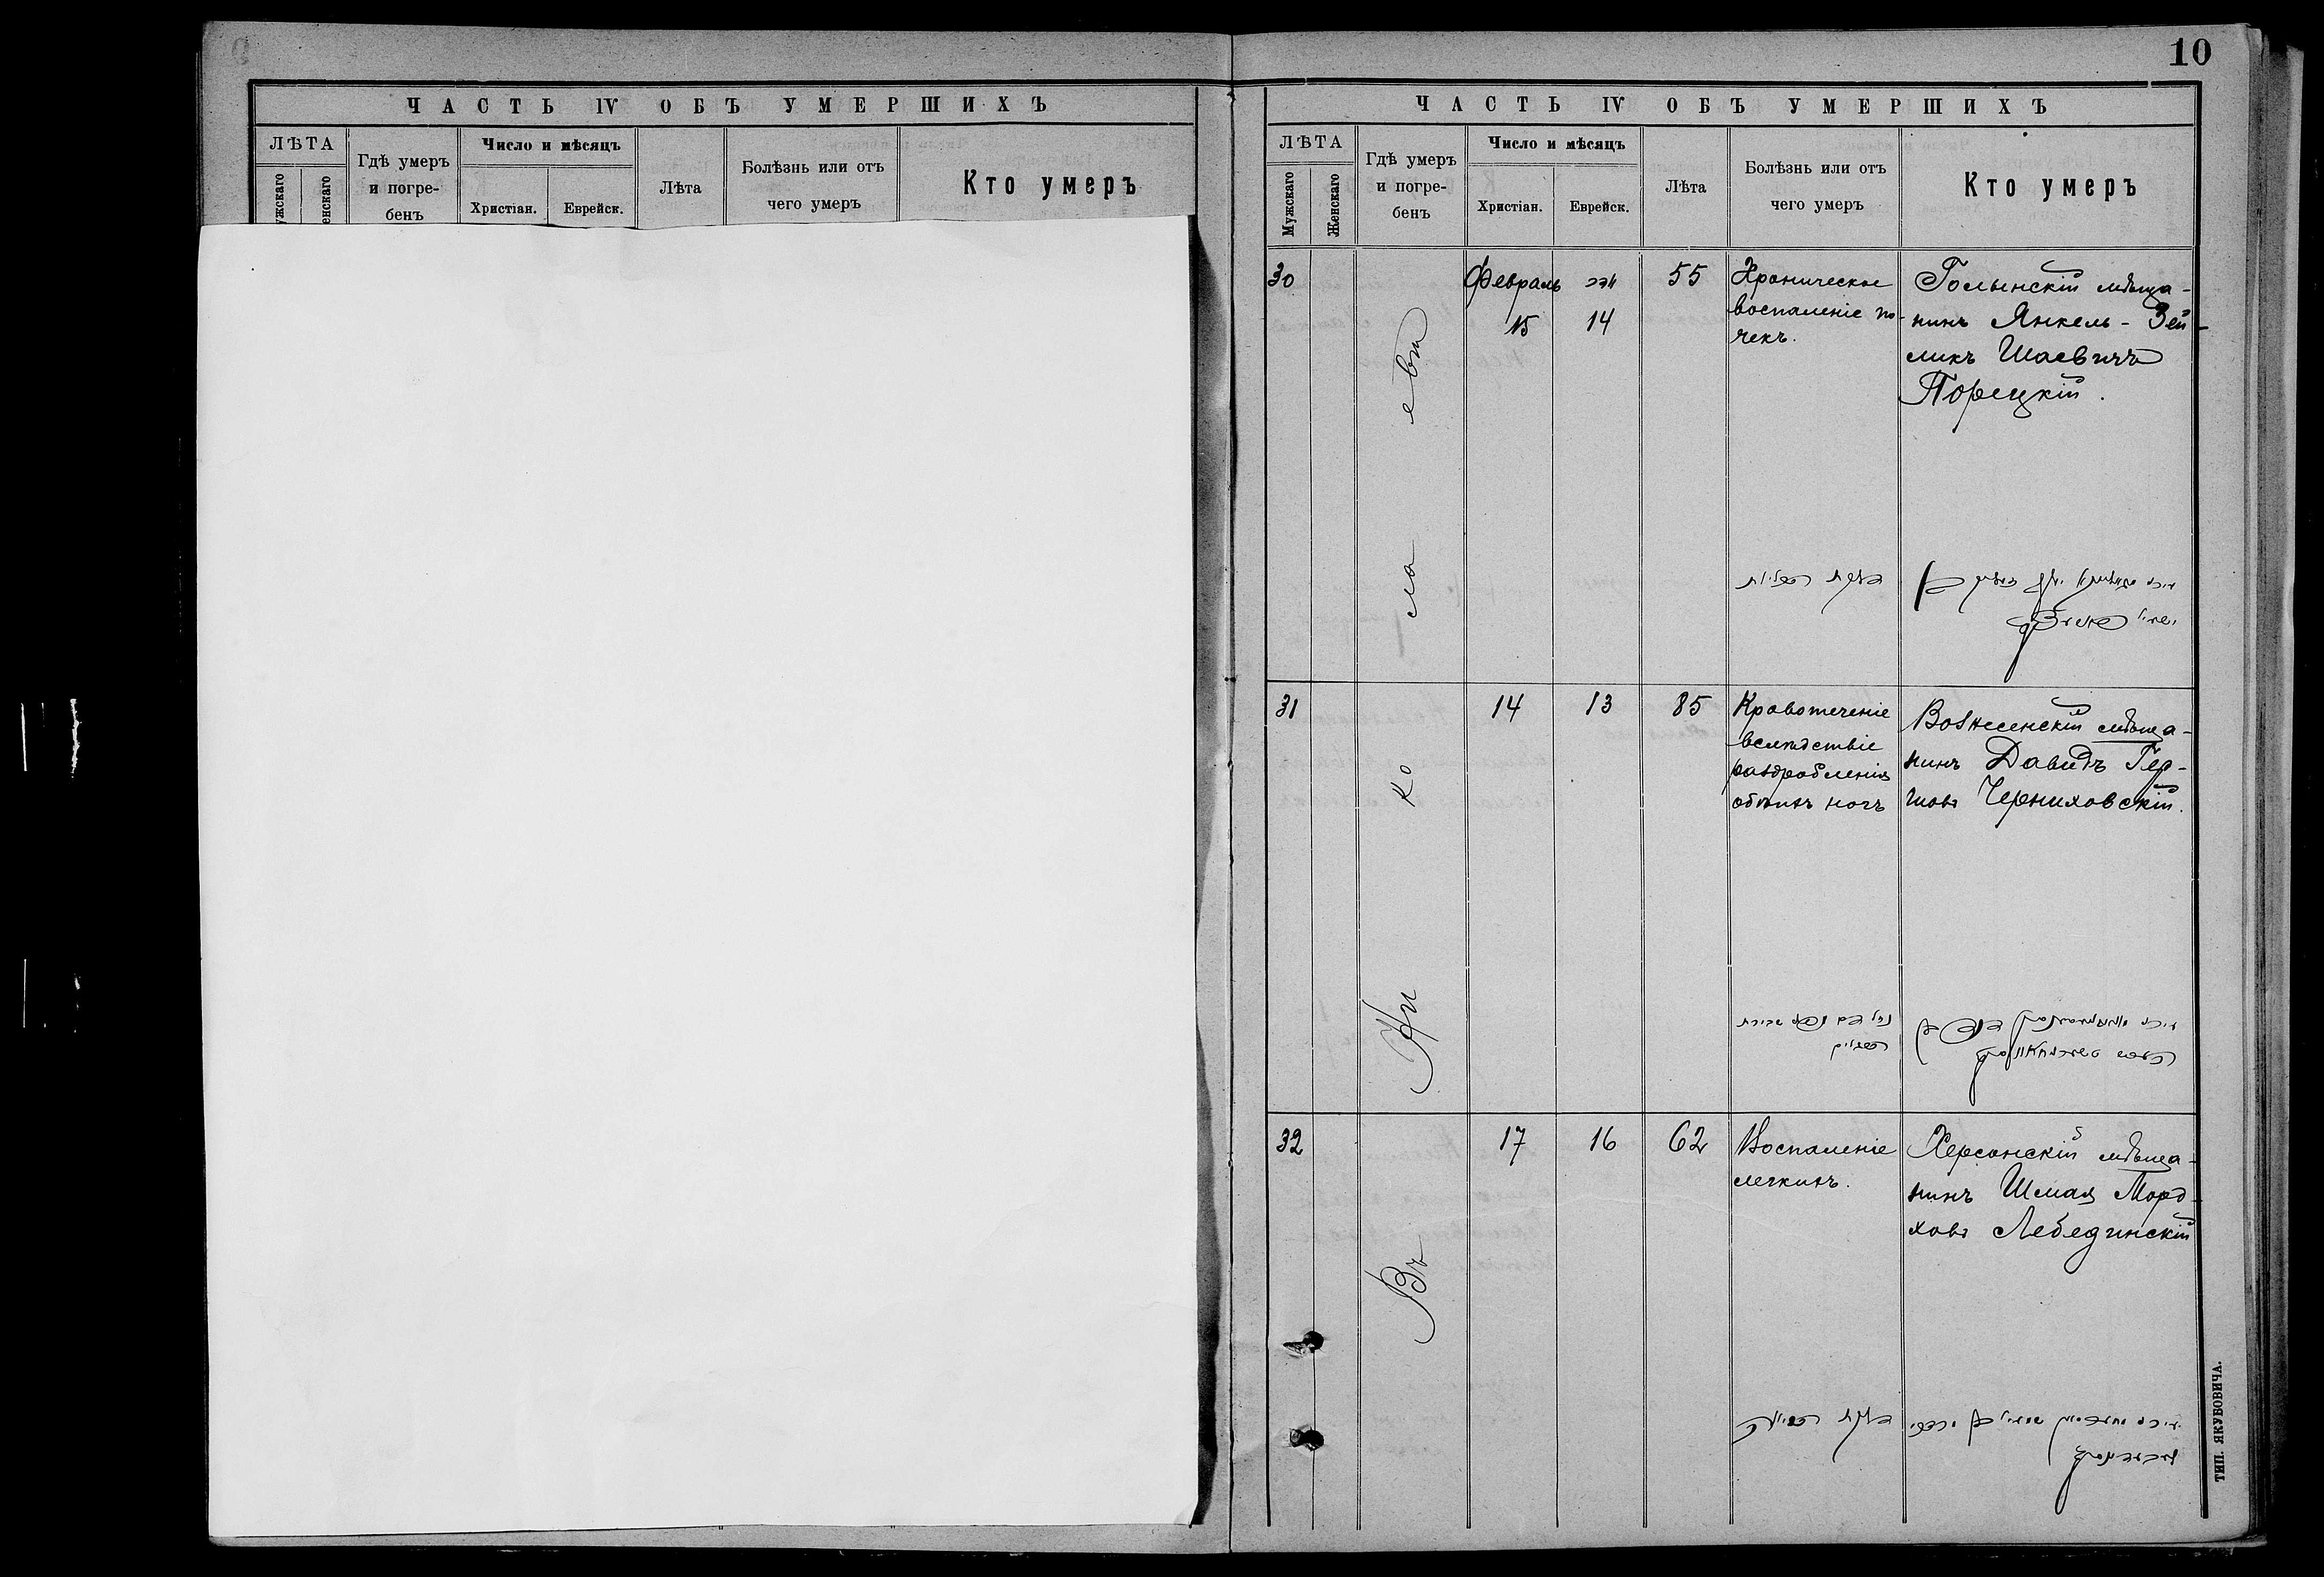 10
ЧАСТЬ IV ОБЪ УМЕРШИХЪ
ЛѢТА
Гдѣ умеръ
и погре-
бенъ
Число и мѣсяцъ
Христіан.
Еврейск.
Лѣта
Болѣзнь или отъ
чего умеръ
Кто умеръ
ЧАСТЬ IV ОБЪ УМЕРШИХЪ
ЛѢТА
Мужскаго
Женскаго
Гдѣ умеръ
и погре-
бенъ
Число и мѣсяцъ
Христіан.
Еврейск.
Лѣта
Болѣзнь или отъ
чего умеръ
Кто умеръ
Въ Ни ко ла евѣ
30
Февраль
15
14
55
Хроническое
воспаленіе по-
чекъ.
Голынскій мѣща-
нинъ Янкель-Зей-
ликъ Шаевичъ
Порецкій.
31
14
13
85
Кровотеченіе
вслѣдствіе
раздробленія
обѣихъ ногъ
Вознесенскій мѣща-
нинъ Давидъ Гер-
шовъ Черниховскій.
32
17
16
62
Воспаленіе
легкихъ.
Херсонскій мѣща-
нинъ Шмая Морд-
ховъ Лебединскій
ТИП. ЯКУБОВИЧА.